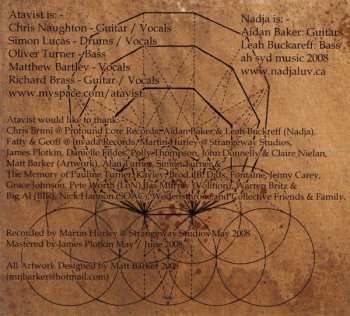 Atavist is: -
Chris Naughton - Guitar / Vocals
Simon Lucas - Drums / Vocals
Oliver Turner - Bass
Matthew Bartley - Vocals
Richard Brass - Guitar / Vocals
www.myspace.com/atavist
Nadja is: -
Aidan Baker: Guitars
Leah Buckareff: Bass
ah syd music 2008
www.nadjaluv.ca
Atavist would like to thank: -
Chris Bruni @ Profound Lore Records, Aidan Baker & Leah Buckreff (Nadja),
Fatty & Geoff @ Invada Records, Martin Hurley @ Strangeway Studios,
James Plotkin, Danielle Fildes, Polly Thompson, John Donnelly & Claire Nielan,
Matt Barker (Artwork), Alan Turner, Simon Turner &
The Memory of Pauline Turner, Kayley, Dids, Fontaine, Jenny Carey,
Grace Johnson, Pete Worth (LSN), Jas Murray (Volition), Warren Britz &
Big Al (BB), Nick Hannon (SOAC), and Collective Friends & Family.
Recorded by Martin Hurley @ Strangeway Studios May 2008
Mastered by James Plotkin May / June 2008
All Artwork Designed by Matt Barker 2008
(mrjbarker@hotmail.com)